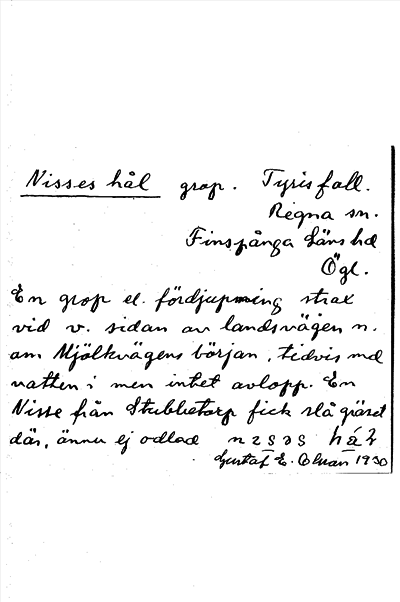 Nisses hål grop. Tyrisfall.
Regna sn.
Finspånga läns hd
Ögl.
En grop el. fördjupning strax
vid v. sidan av landsvägen n.
om Mjölkvägens början, tidvis med
vatten i men intet avlopp. En
Nisse från Stubbetorp fick slå gräset
där, ännu ej odlad
Gustaf E. 1930